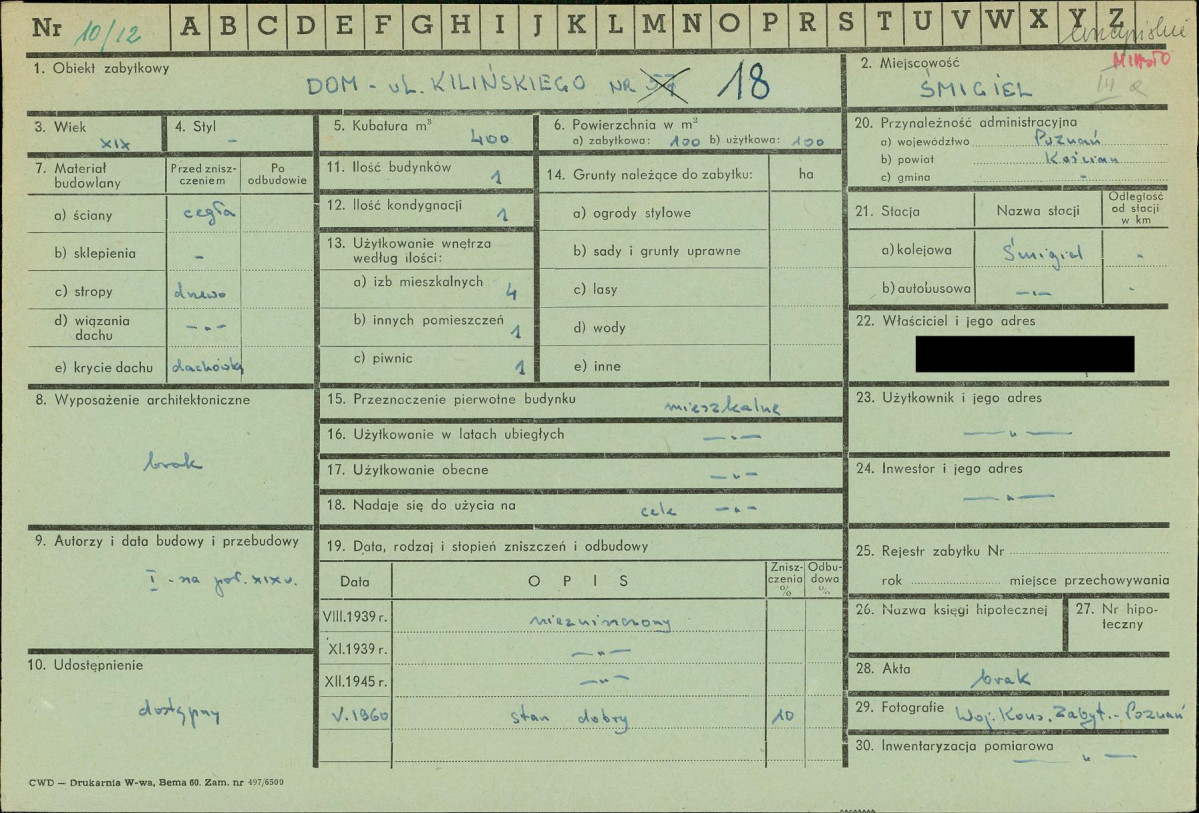 Nr 10/12 A B C D E F G H I J K L M N O P R S T U V W X Y Z
MIASTO
III a
1. Obiekt zabytkowy
DOM - ul. KILIŃSKIEGO NR 57 18
2. Miejscowość
ŚMIGIEL
3. Wiek
XIX
4. Styl
-
5. Kubatura m³
400
6. Powierzchnia w m²
a) zabytkowa: 100 b) użytkowa: 100
7. Materiał budowlany
Przed zniszczeniem
Po odbudowie
a) ściany cegła
b) sklepienia -
c) stropy drewno
d) wiązania dachu -„-
e) krycie dachu dachówka
8. Wyposażenie architektoniczne
brak
9. Autorzy i data budowy i przebudowy
I - na poł. XIX w.
10. Udostępnienie
dostępny
11. Ilość budynków
1
12. Ilość kondygnacji
1
13. Użytkowanie wnętrza
według ilości:
a) izb mieszkalnych
4
b) innych pomieszczeń
1
c) piwnic
1
14. Grunty należące do zabytku: ha
a) ogrody stylowe
b) sady i grunty uprawne
c) lasy
d) wody
e) inne
15. Przeznaczenie pierwotne budynku mieszkalne
16. Użytkowanie w latach ubiegłych -„-
17. Użytkowanie obecne -„-
18. Nadaje się do użycia na cele -„-
19. Data, rodzaj i stopień zniszczeń i odbudowy
Data O P I S Zniszczenia % Odbudowa %
VIII.1939 r. niezniszczony
XI.1939 r. -„-
XII.1945 r. -„-
V.1960 stan dobry 10
20. Przynależność administracyjna
a) województwo Poznań
b) powiat Kościan
c) gmina -
21. Stacja Nazwa stacji Odległość od stacji w km
a) kolejowa Śmigiel -
b) autobusowa -„- -
22. Właściciel i jego adres
23. Użytkownik i jego adres
-„-
24. Inwestor i jego adres
-„-
25. Rejestr zabytku Nr
rok miejsce przechowywania
26. Nazwa księgi hipotecznej
27. Nr hipoteczny
28. Akta
brak
29. Fotografie Woj. Kons. Zabyt. - Poznań
30. Inwentaryzacja pomiarowa
-„-
CWD — Drukarnia W-wa, Bema 60. Zam. nr 497/6500